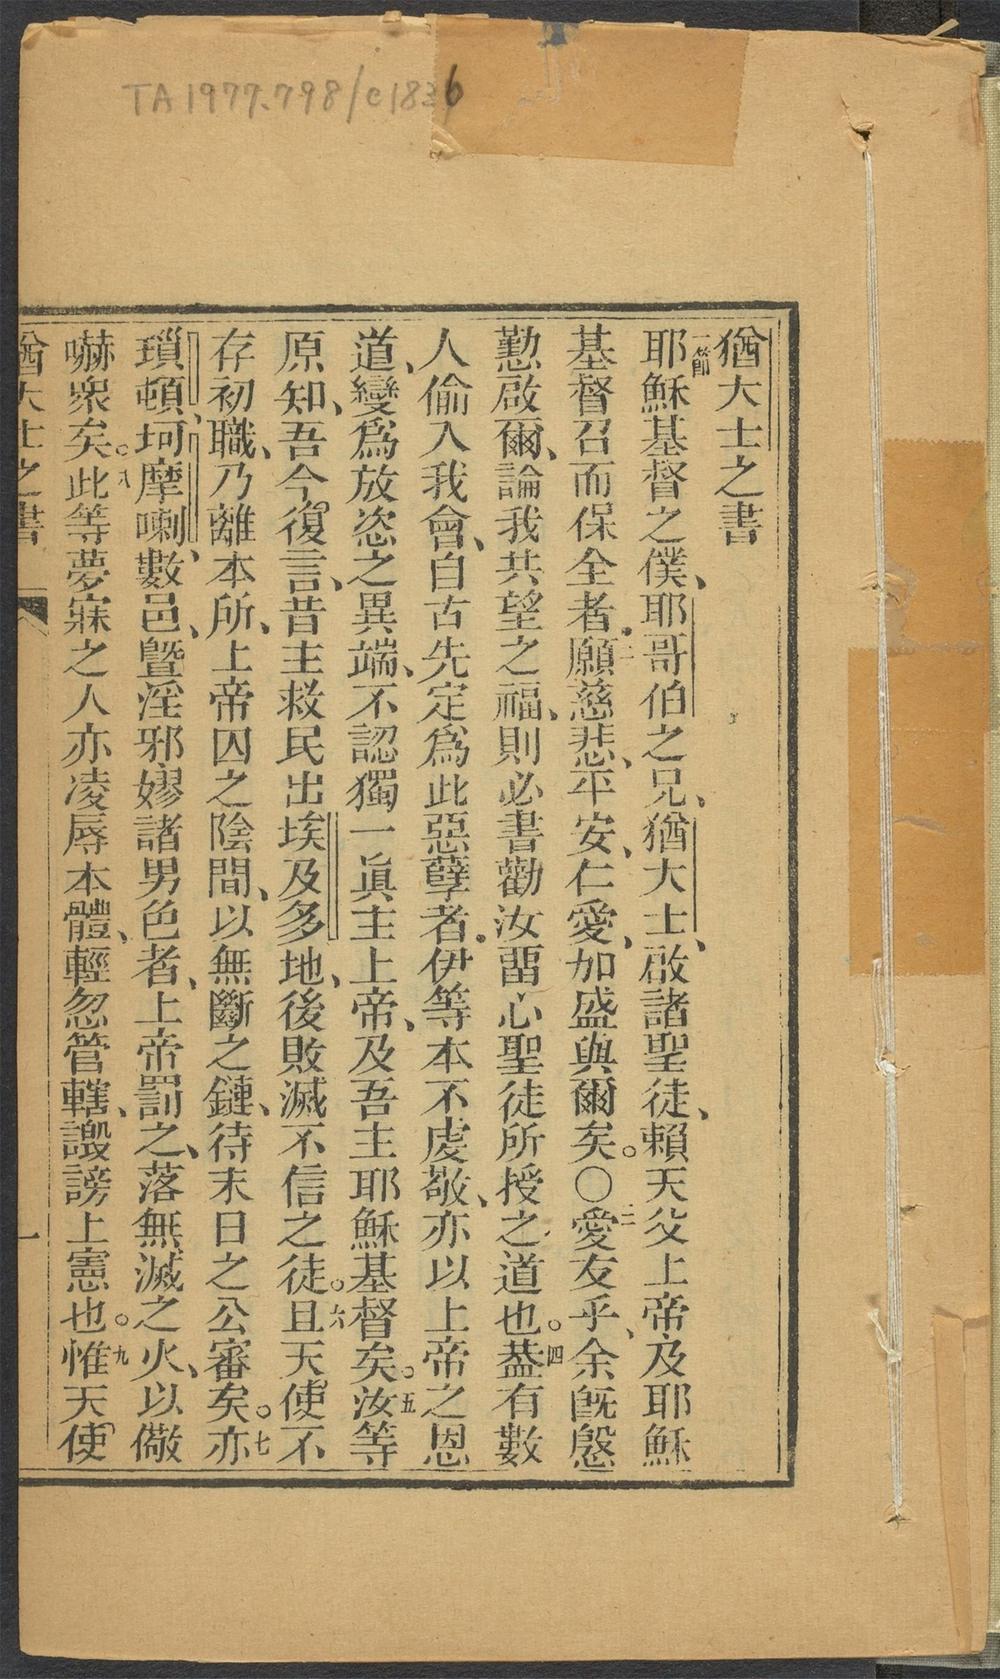 TA 1977.798/c1836
猶大士之書
一節 耶穌基督之僕、耶哥伯之兄、猶大士、啟諸聖徒、賴天父上帝及耶穌
基督召而保全者、二願慈悲、平安、仁愛、加盛與爾矣。〇三愛友乎、余旣慇
懃啟爾、論我共望之福、則必書勸汝畱心聖徒所授之道也。四葢有數
人偷入我會、自古先定爲此惡孽者、伊等本不虔敬、亦以上帝之恩
道、變爲放恣之異端、不認獨一眞主上帝、及吾主耶穌基督矣。五汝等
原知、吾今復言、昔主救民出埃及多地、後敗滅不信之徒。六且天使不
存初職、乃離本所、上帝囚之陰間、以無斷之鏈、待末日之公審矣。七亦
瑣頓、坷摩喇、數邑、曁淫邪嫪諸男色者、上帝罰之、落無滅之火、以儆
嚇眾矣。八此等夢寐之人亦凌辱本體、輕忽管轄、譭謗上憲也。九惟天使
猶大士之書 一